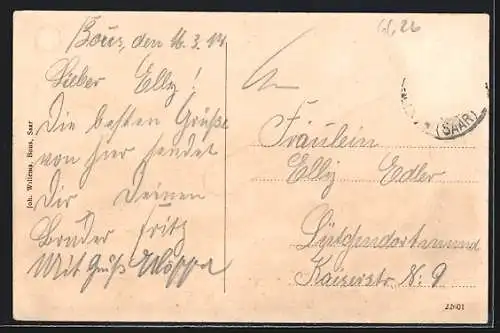 6626
Bous, den 16.3.14
Lieber Elly!
Die besten Grüße
von hier sendet
Dir Deinen
Bruder Fritz
Mit Gruß
Fräulein
Elly Edler
Lütgendortmund
Kaiserstr N. 9
(SAAR)
Joh. Willems, Bous, Saar